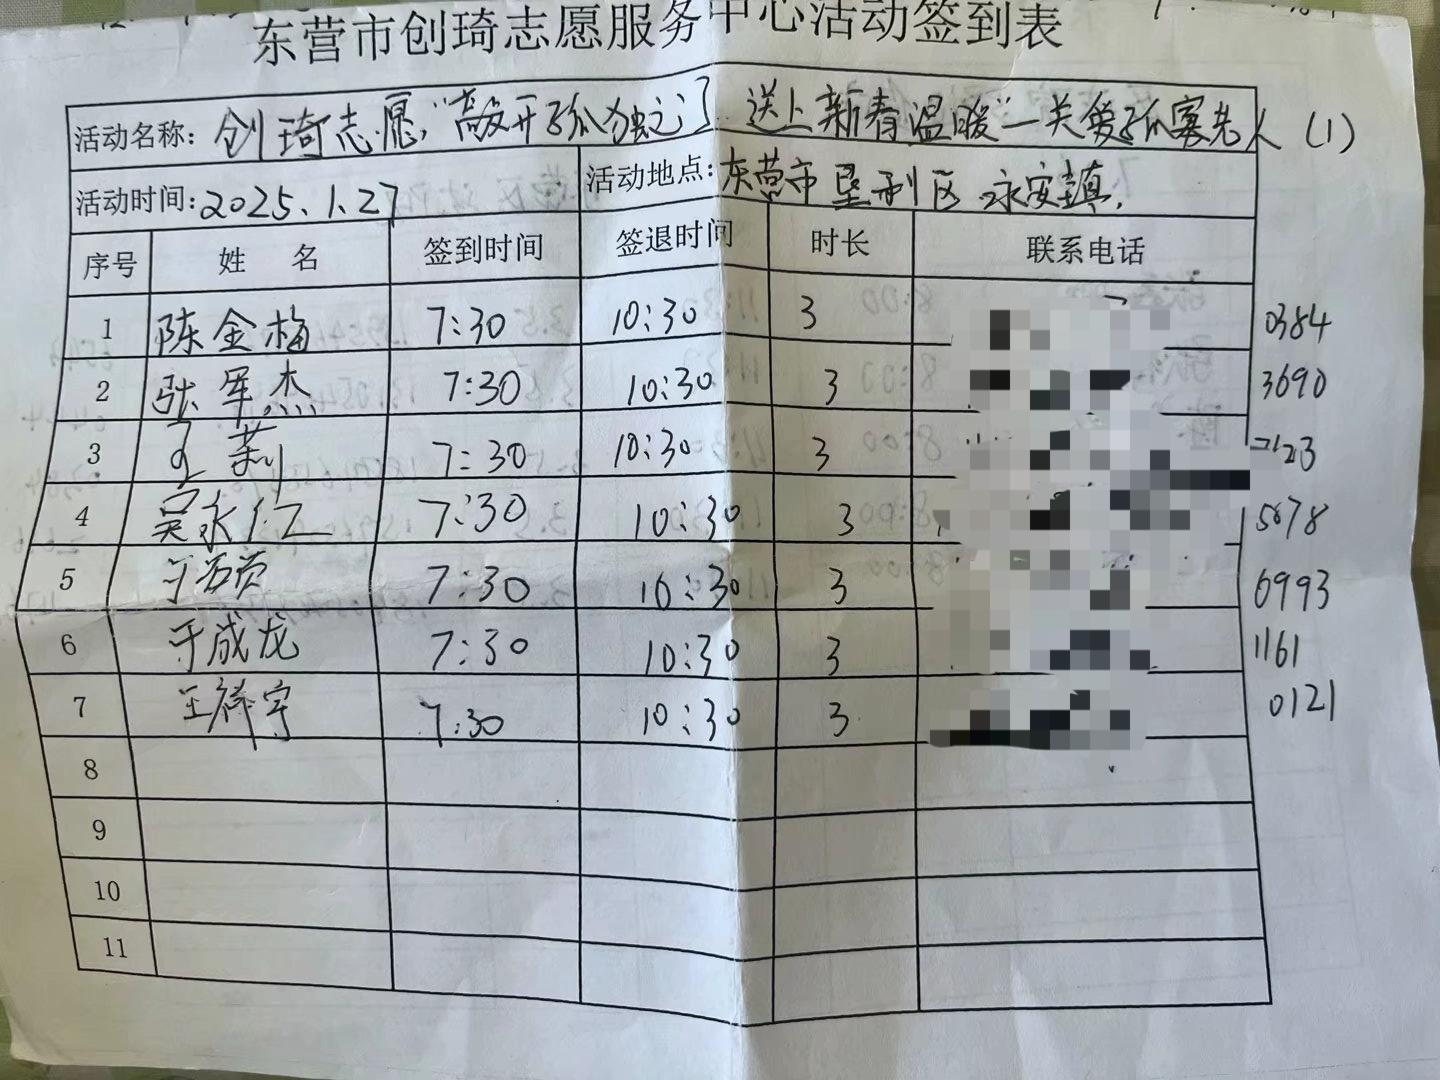 东营市创琦志愿服务中心活动签到表
活动名称: 创琦志愿,"敲开孤独之门 送上新春温暖"—关爱孤寡老人(1)
活动时间: 2025.1.27 活动地点: 东营市垦利区永安镇.
序号 姓 名 签到时间 签退时间 时长 联系电话
1 陈金梅 7:30 10:30 3 0384
2 张军杰 7:30 10:30 3 3690
3 莉 7:30 10:30 3 2123
4 吴永仁 7:30 10:30 3 5678
5 于 7:30 10:30 3 6993
6 于成龙 7:30 10:30 3 1161
7 王祥宇 7:30 10:30 3 0121
8
9
10
11